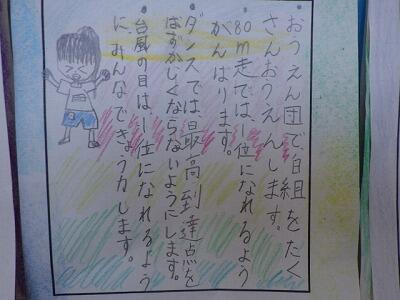 ・おうえん団で、白組をたく
さんおうえんします。
・80m走では、1位になれるよう
がんばります。
・ダンスでは、最高到達点を
はずかしくならないようにします。
・台風の目は、1位になれるよう
に、みんなできょう力します。